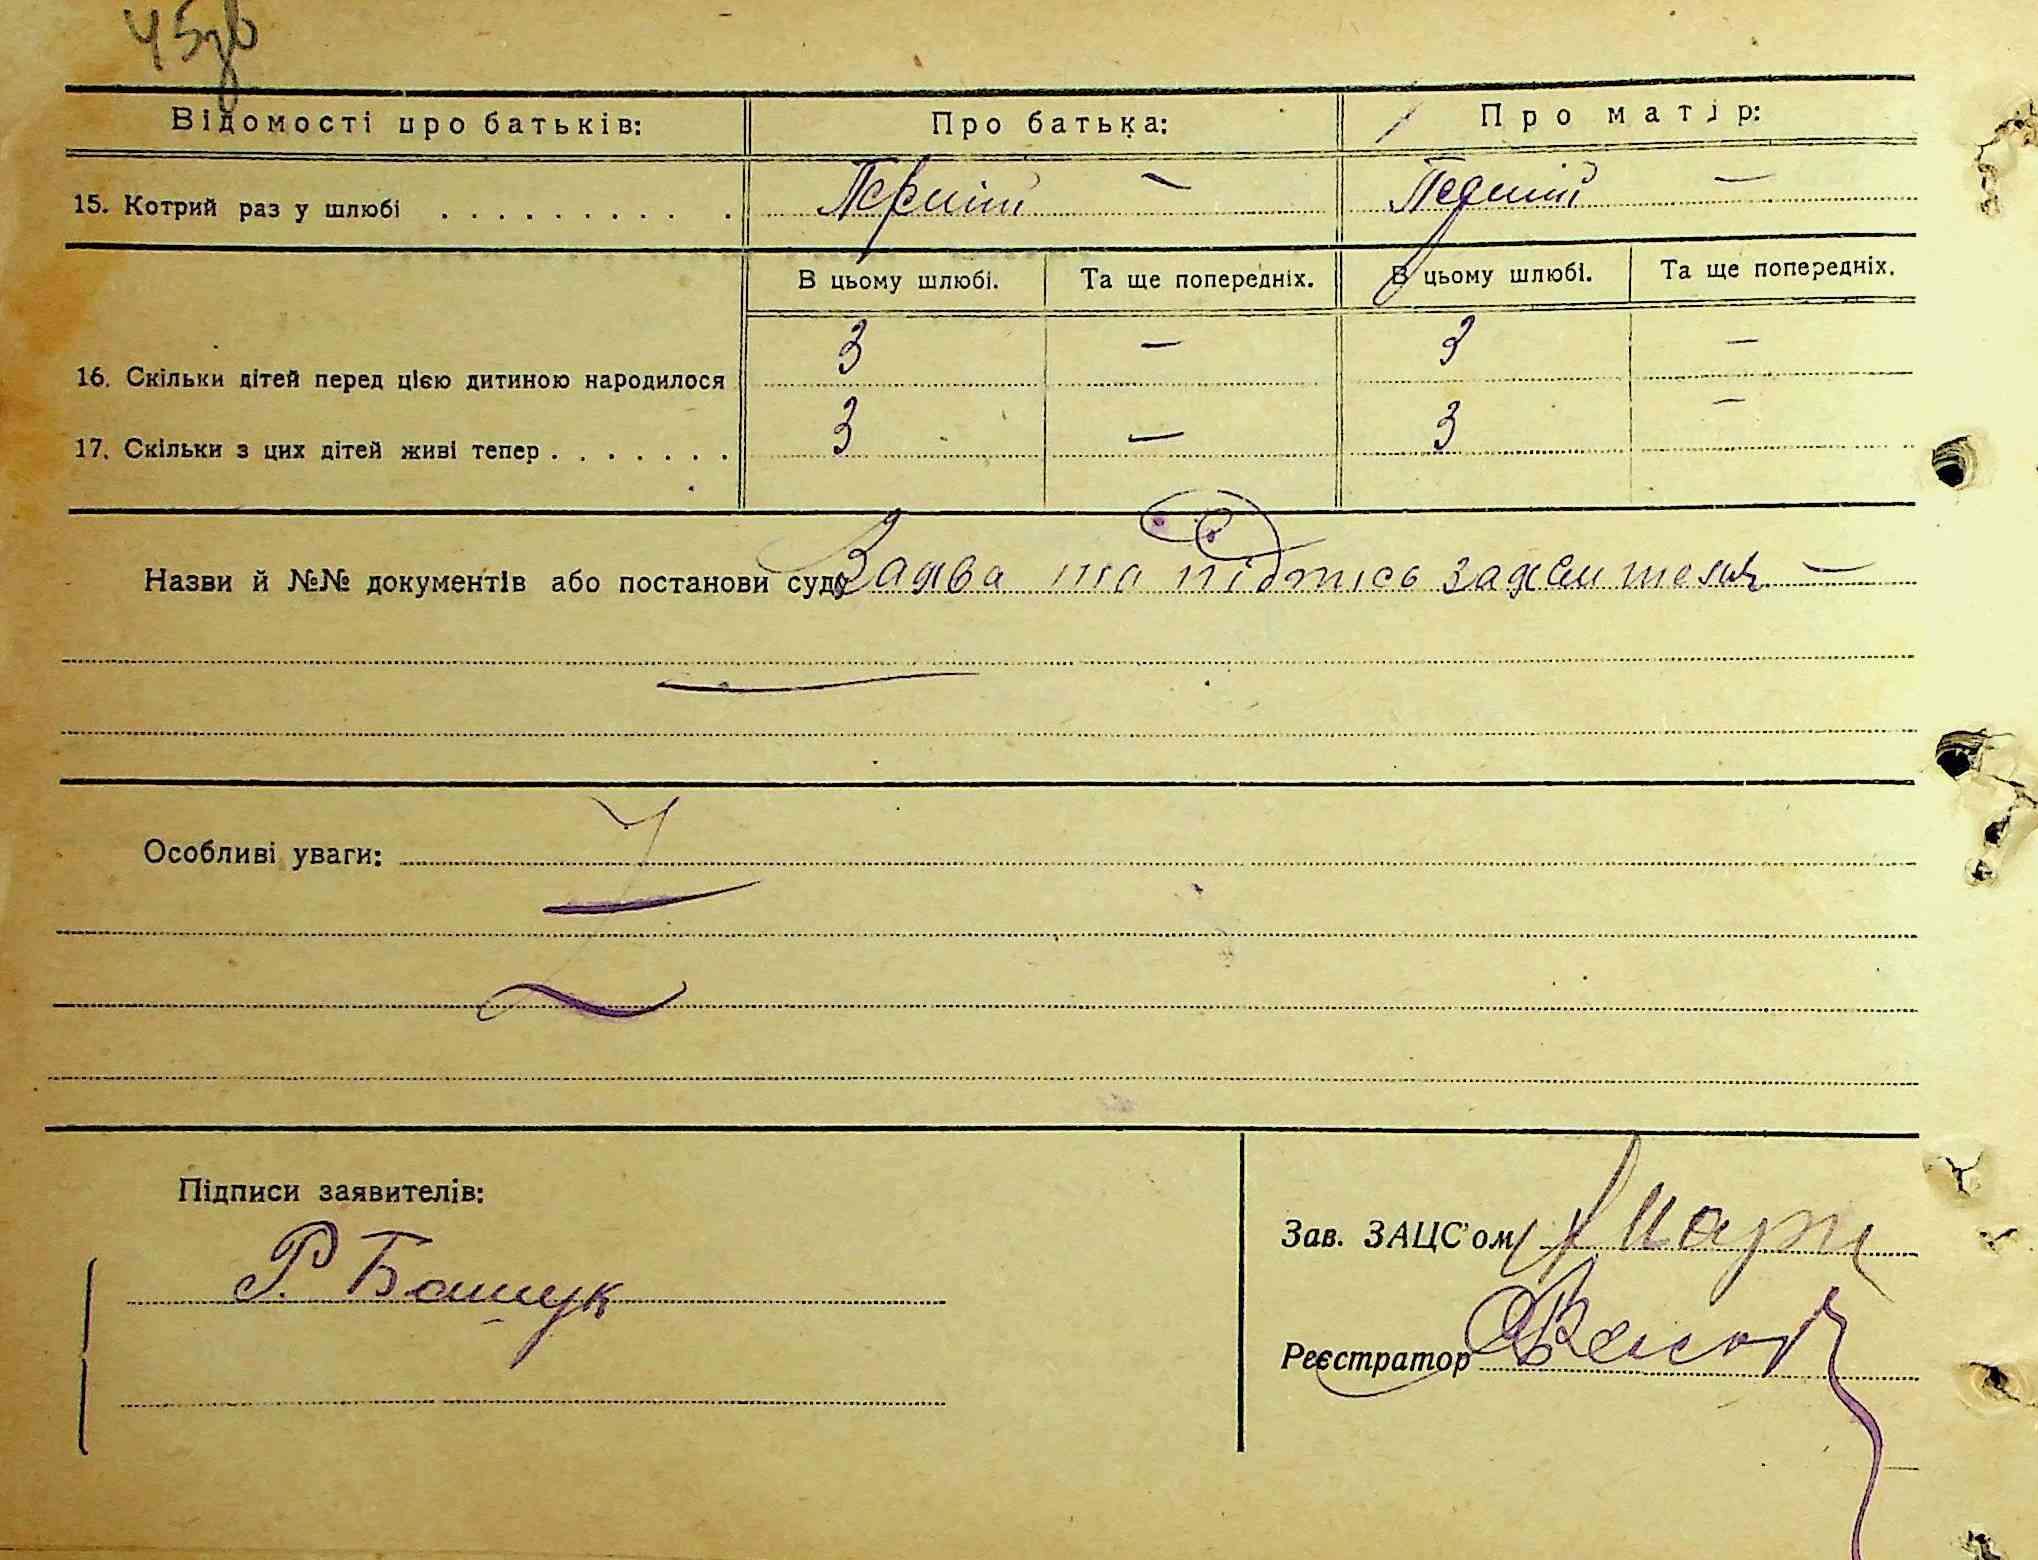 45зв
Відомості про батьків: Про батька: Про матір:
15. Котрий раз у шлюбі . . . . . . . . . . Перший — Перший —
В цьому шлюбі. Та ще попередніх. В цьому шлюбі. Та ще попередніх.
16. Скільки дітей перед цією дитиною народилося 3 — 3 —
17. Скільки з цих дітей живі тепер . . . . . . . 3 — 3 —
Назви й №№ документів або постанови суду Заява та підпись заявителя —
Особливі уваги:
Підписи заявителів:
Зав. ЗАЦС'ом
Р. Башук
Реєстратор